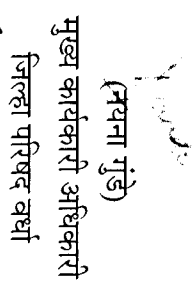 (नयना गुंडे)
मुख्य कार्यकारी अधिकारी
जिल्हा परिषद वर्धा